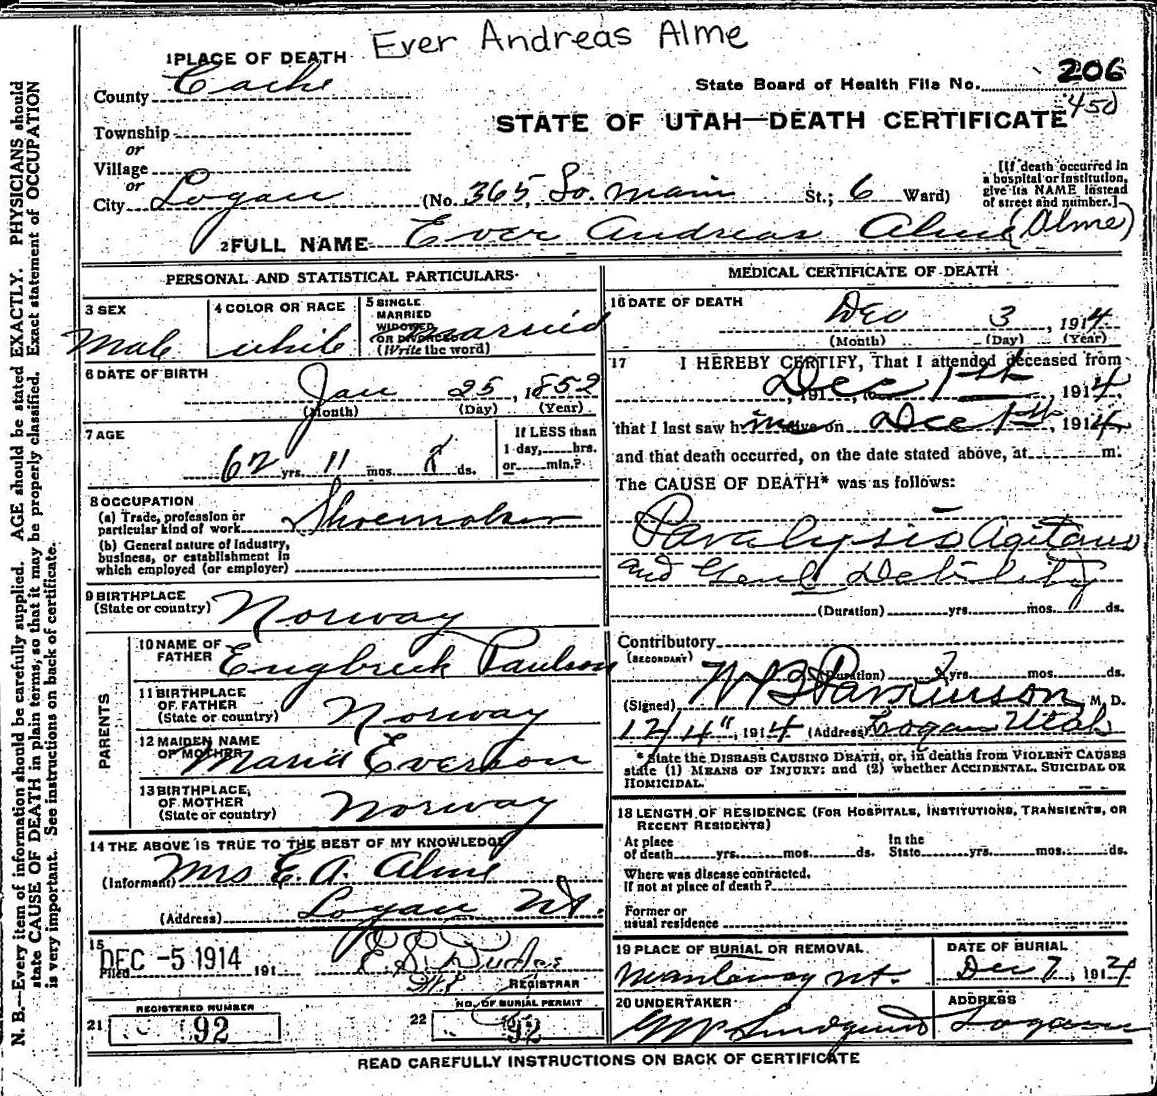 Ever Andreas Alme
1 PLACE OF DEATH
County Cache
State Board of Health File No. 206
450
Township
or
Village
or
City Logan
STATE OF UTAH—DEATH CERTIFICATE
(No. 365, So. Main St.; 6 Ward)
[If death occurred in
a hospital or institution,
give its NAME instead
of street and number.]
2 FULL NAME Ever Andreas Alme (Alme)
PERSONAL AND STATISTICAL PARTICULARS
3 SEX
Male
4 COLOR OR RACE
white
5 SINGLE
MARRIED
WIDOWED
OR DIVORCED
(Write the word)
Married
6 DATE OF BIRTH
Jan 25, 1852
(Month) (Day) (Year)
7 AGE
62 yrs. 11 mos. 8 ds.
If LESS than
1 day, hrs.
or min.?
8 OCCUPATION
(a) Trade, profession or
particular kind of work Shoemaker
(b) General nature of Industry,
business, or establishment in
which employed (or employer)
9 BIRTHPLACE
(State or country) Norway
PARENTS
10 NAME OF
FATHER Paulson
11 BIRTHPLACE
OF FATHER
(State or country) Norway
12 MAIDEN NAME
OF MOTHER Maria Everson
13 BIRTHPLACE
OF MOTHER
(State or country) Norway
14 THE ABOVE IS TRUE TO THE BEST OF MY KNOWLEDGE
(Informant) Mrs E. A. Alme
(Address) Logan Ut.
15
Filed DEC -5 1914 191
REGISTRAR
REGISTERED NUMBER
21 92
NO. OF BURIAL PERMIT
22 92
MEDICAL CERTIFICATE OF DEATH
16 DATE OF DEATH
Dec 3, 1914
(Month) (Day) (Year)
17 I HEREBY CERTIFY, That I attended deceased from
Dec 1st, 191, to 1914
that I last saw him alive on Dec 1st, 1914
and that death occurred, on the date stated above, at m.
The CAUSE OF DEATH* was as follows:
Paralysis Agitans
and Genl Debility
(Duration) yrs. mos. ds.
Contributory
(SECONDARY)
(Duration) 2 yrs. mos. ds.
(Signed) W B Parkinson, M. D.
12/4", 1914 (Address) Logan Utah
* State the DISEASE CAUSING DEATH, or, in deaths from VIOLENT CAUSES
state (1) MEANS OF INJURY; and (2) whether ACCIDENTAL, SUICIDAL OR
HOMICIDAL.
18 LENGTH OF RESIDENCE (FOR HOSPITALS, INSTITUTIONS, TRANSIENTS, OR
RECENT RESIDENTS)
At place
of death yrs. mos. ds.
In the
State yrs. mos. ds.
Where was disease contracted.
If not at place of death?
Former or
usual residence
19 PLACE OF BURIAL OR REMOVAL
Ut.
DATE OF BURIAL
Dec 7, 1914
20 UNDERTAKER
Lindquist
ADDRESS
Logan
READ CAREFULLY INSTRUCTIONS ON BACK OF CERTIFICATE
N. B.—Every item of information should be carefully supplied. AGE should be stated EXACTLY. PHYSICIANS should
state CAUSE OF DEATH in plain terms, so that it may be properly classified. Exact statement of OCCUPATION
is very important. See instructions on back of certificate.